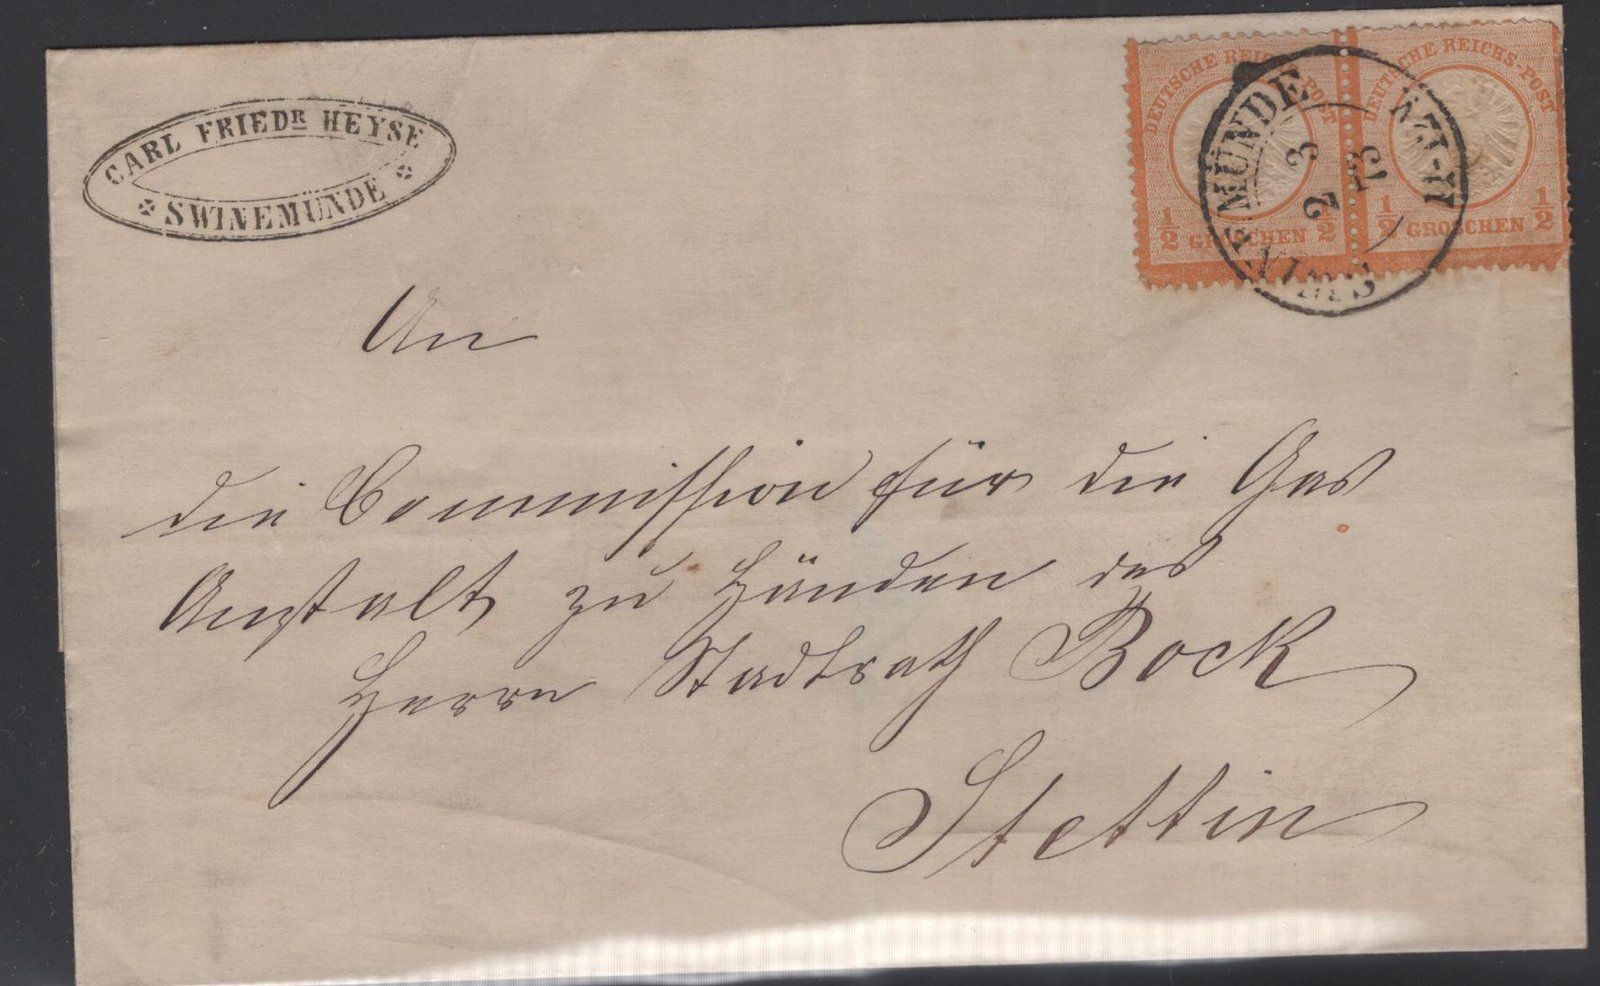 CARL FRIEDR HEYSE
SWINEMÜNDE
DEUTSCHE REICHS-POST
½ GROSCHEN ½
DEUTSCHE REICHS-POST
½ GROSCHEN ½
SWINEMÜNDE
3 2 73
An
die Commission für die Gas
Anstalt zu Händen des
Herrn Stadtrath Bock
Stettin